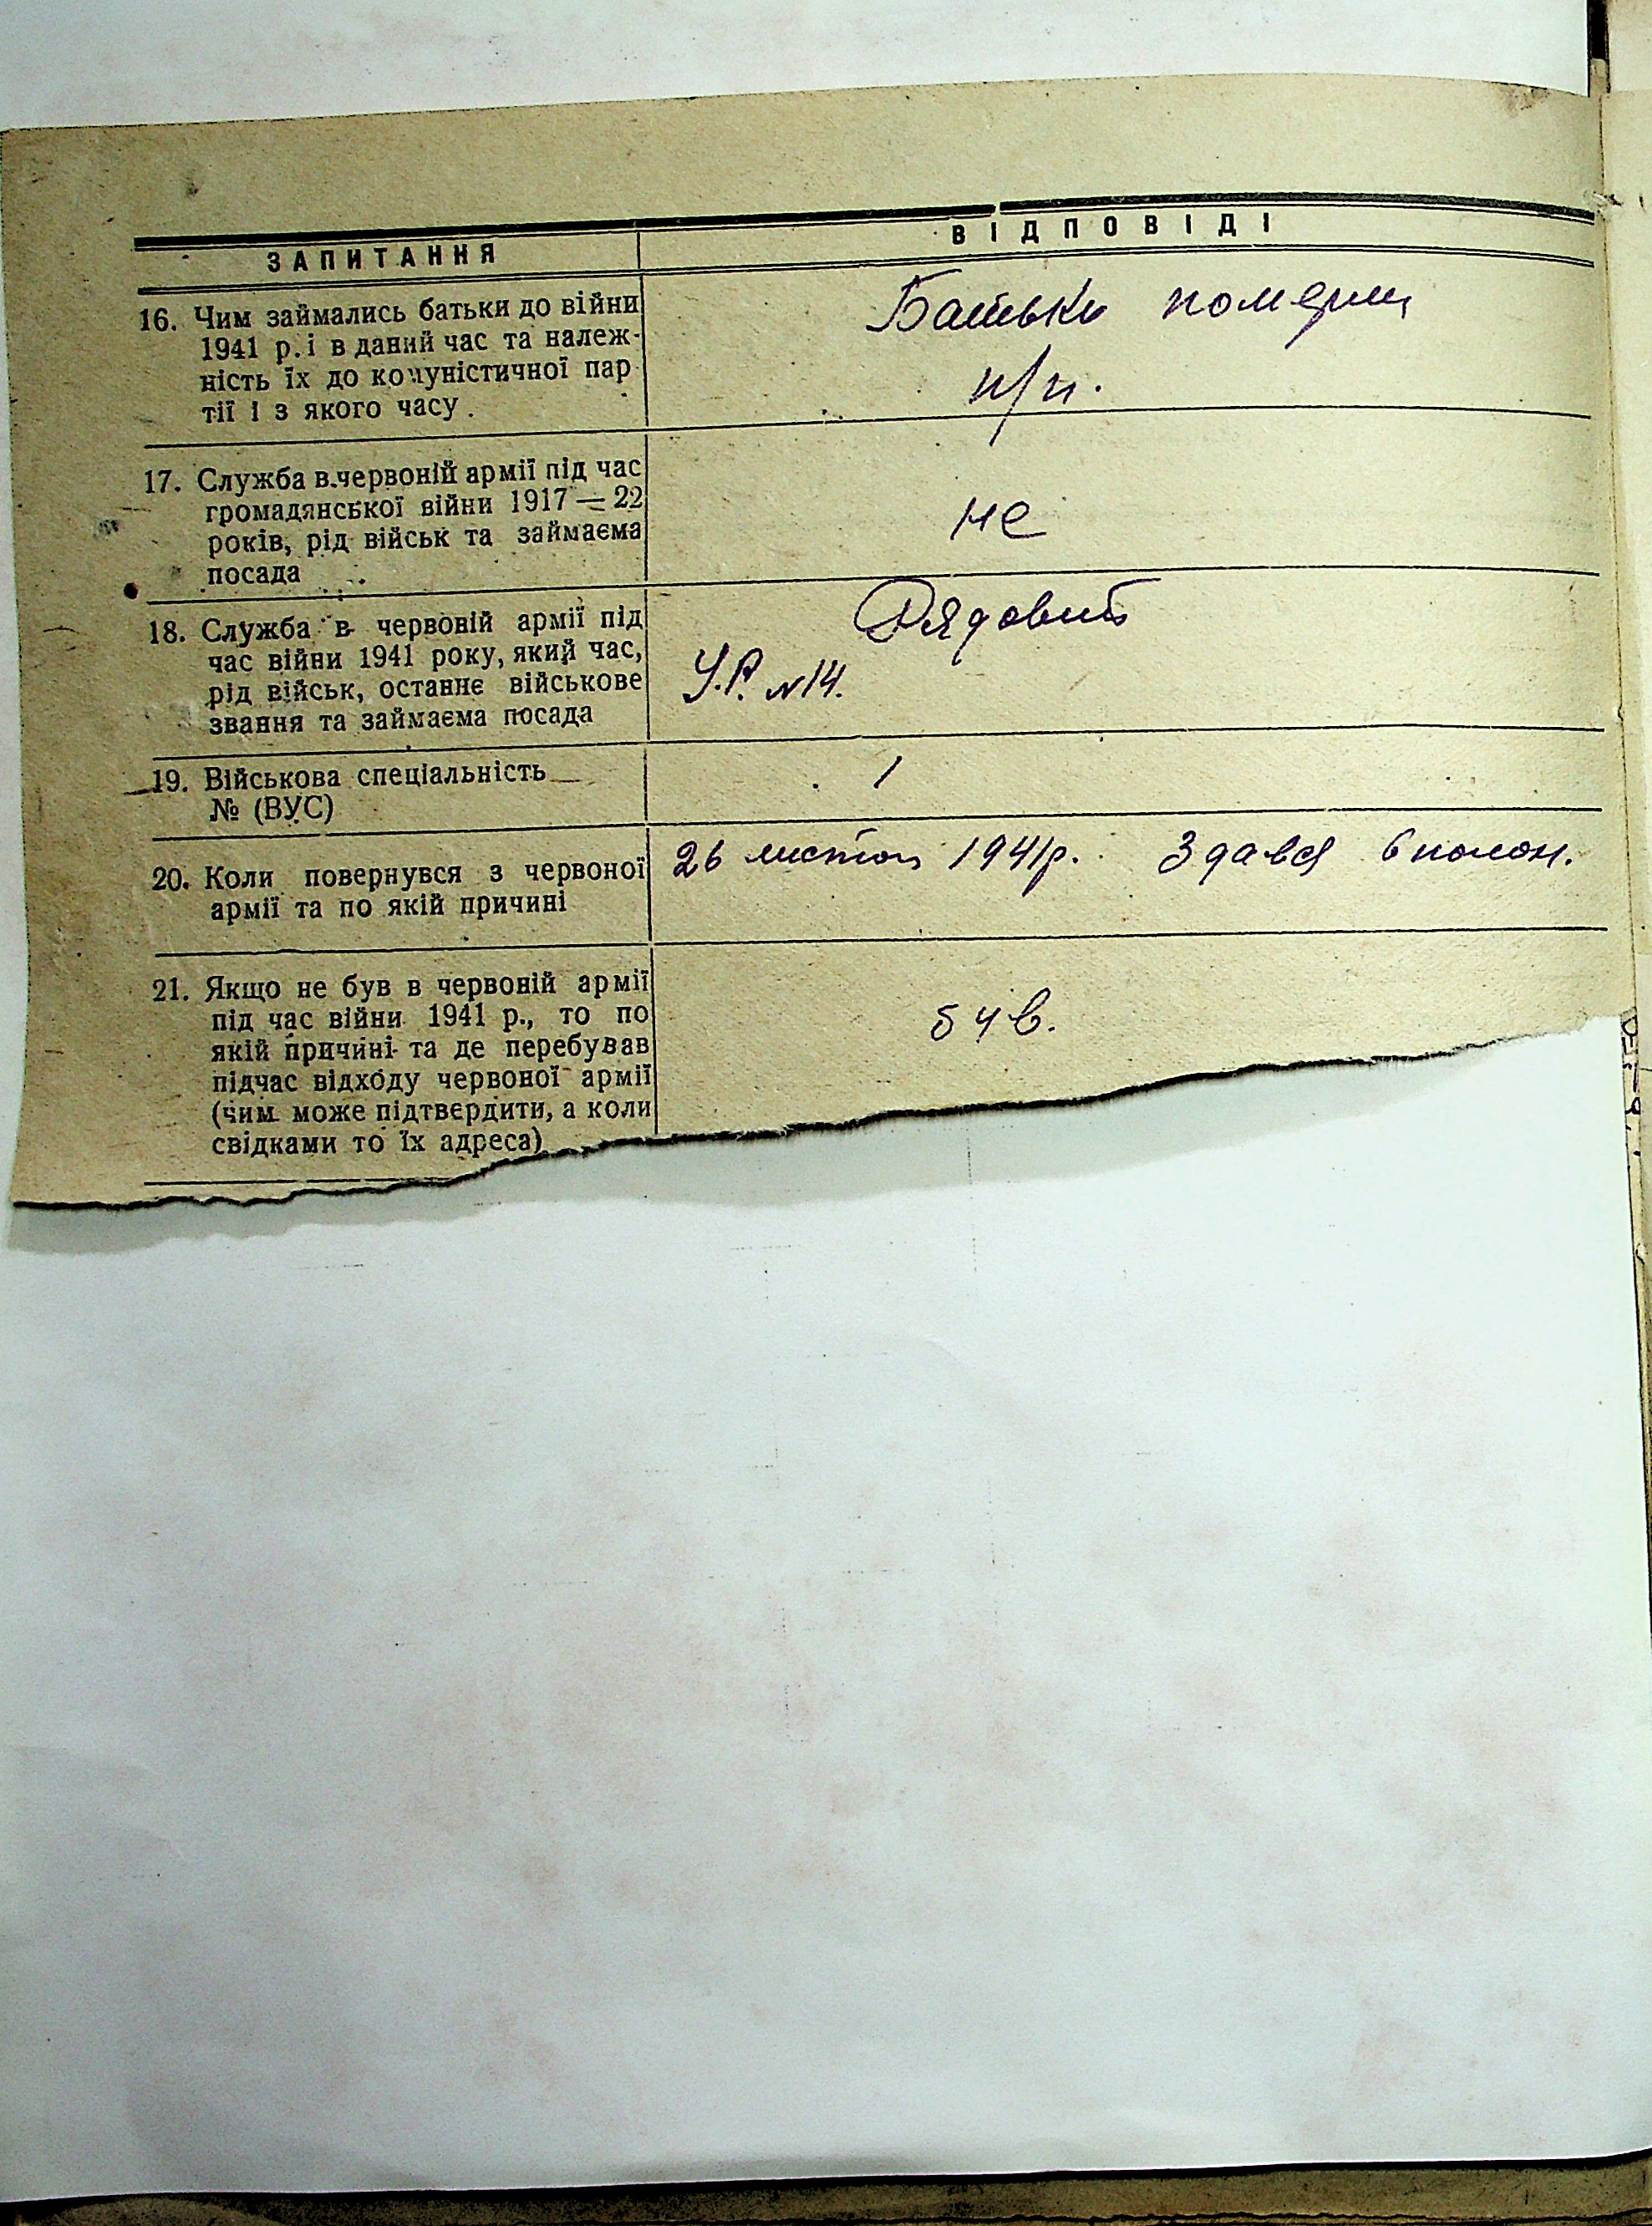 ЗАПИТАННЯ
ВІДПОВІДІ
16. Чим займались батьки до війни
1941 р. і в даний час та належ-
ність їх до комуністичної пар
тії і з якого часу.
Батьки померли
н/п.
17. Служба в червоній армії під час
громадянської війни 1917—22
років, рід військ та займаєма
посада
не
18. Служба в червоній армії під
час війни 1941 року, який час,
рід військ, останнє військове
звання та займаєма посада
Рядовий
У.Р. №14.
19. Військова спеціальність
№ (ВУС)
/
20. Коли повернувся з червоної
армії та по якій причині
26 листоп 1941р. Здався в полон.
21. Якщо не був в червоній армії
під час війни 1941 р., то по
якій причині та де перебував
підчас відходу червоної армії
(чим може підтвердити, а коли
свідками то їх адреса)
був.